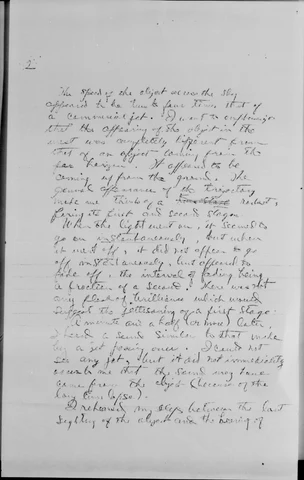 2
The speed of the object across the sky
appeared to be two to four times that of
a commercial jet. I want to emphasize
that the appearing of the object in the
west was completely different from
that of an object coming from the
far horizon. It appeared to be
coming up from the ground. The
general appearance of the trajectory
made me think of a rocket,
firing its first and second stages.
When the light went on, it seemed to
go on instantaneously, but when
it went off, it did not appear to go
off instantaneously, but appeared to
fade off, the interval of fading being
a fraction of a second. There was not
any flash of brilliance which would
suggest the jettisoning of a first stage.
A minute and a half (or more) later,
I heard a sound similar to that made
by a jet going over. I could not
see any jet, but it did not immediately
occur to me that the sound may have
come from the object (because of the
long time lapse).
I rehearsed my steps between the last
sighting of the object and the hearing of